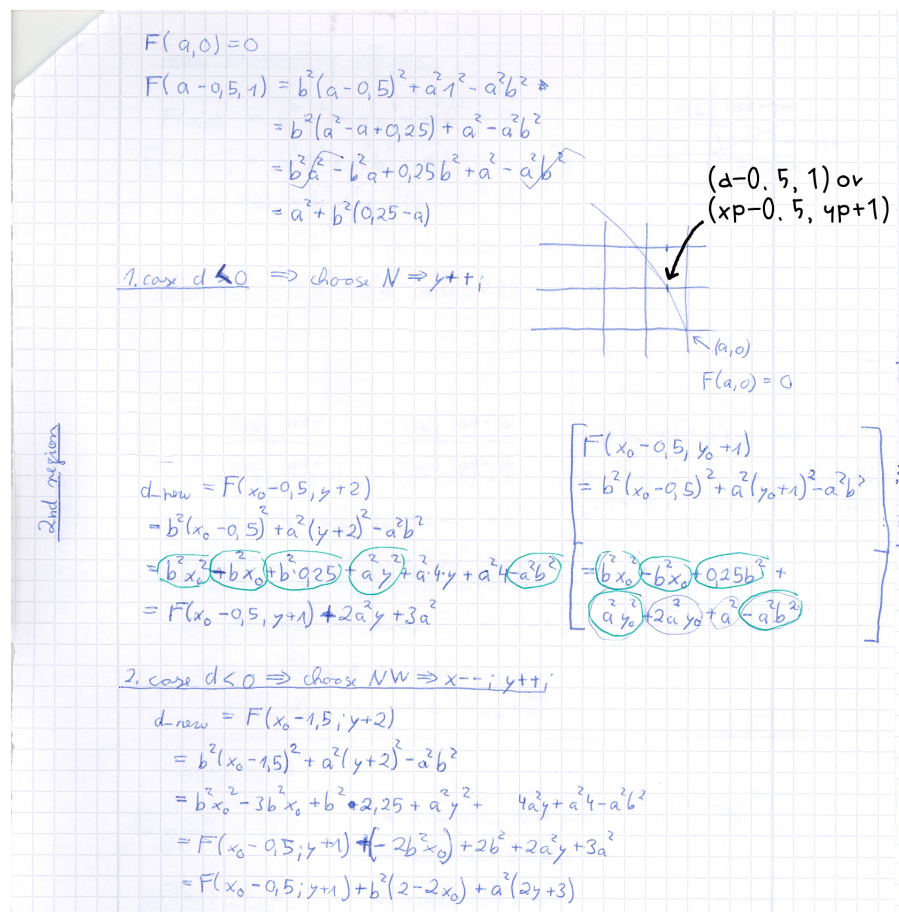 F(a,0)=0
F(a-0,5,1) = b²(a-0,5)² + a²1² - a²b²
= b²(a²-a+0,25) + a² - a²b²
= b²a² - b²a + 0,25b² + a² - a²b²
= a² + b²(0,25-a)
(a-0.5,1) or
(xp-0.5, yp+1)
1. case d<0 ⇒ choose N ⇒ y++;
(a,0)
F(a,0) = 0
2nd region
d_new = F(x₀-0,5, y+2)
= b²(x₀-0,5)² + a²(y+2)² - a²b²
= b²x₀² - b²x₀ + b²·0,25 + a²y² + a²·4·y + a²4 - a²b²
= F(x₀-0,5, y+1) + 2a²y + 3a²
F(x₀-0,5, y₀+1)
= b²(x₀-0,5)² + a²(y₀+1)² - a²b²
= b²x₀² - b²x₀ + 0,25b² +
a²y₀² + 2a²y₀ + a² - a²b²
2. case d<0 ⇒ choose NW ⇒ x--; y++;
d_new = F(x₀-1,5; y+2)
= b²(x₀-1,5)² + a²(y+2)² - a²b²
= b²x₀² - 3b²x₀ + b²·2,25 + a²y² + 4a²y + a²4 - a²b²
= F(x₀-0,5; y+1) + (-2b²x₀) + 2b² + 2a²y + 3a²
= F(x₀-0,5; y+1) + b²(2-2x₀) + a²(2y+3)